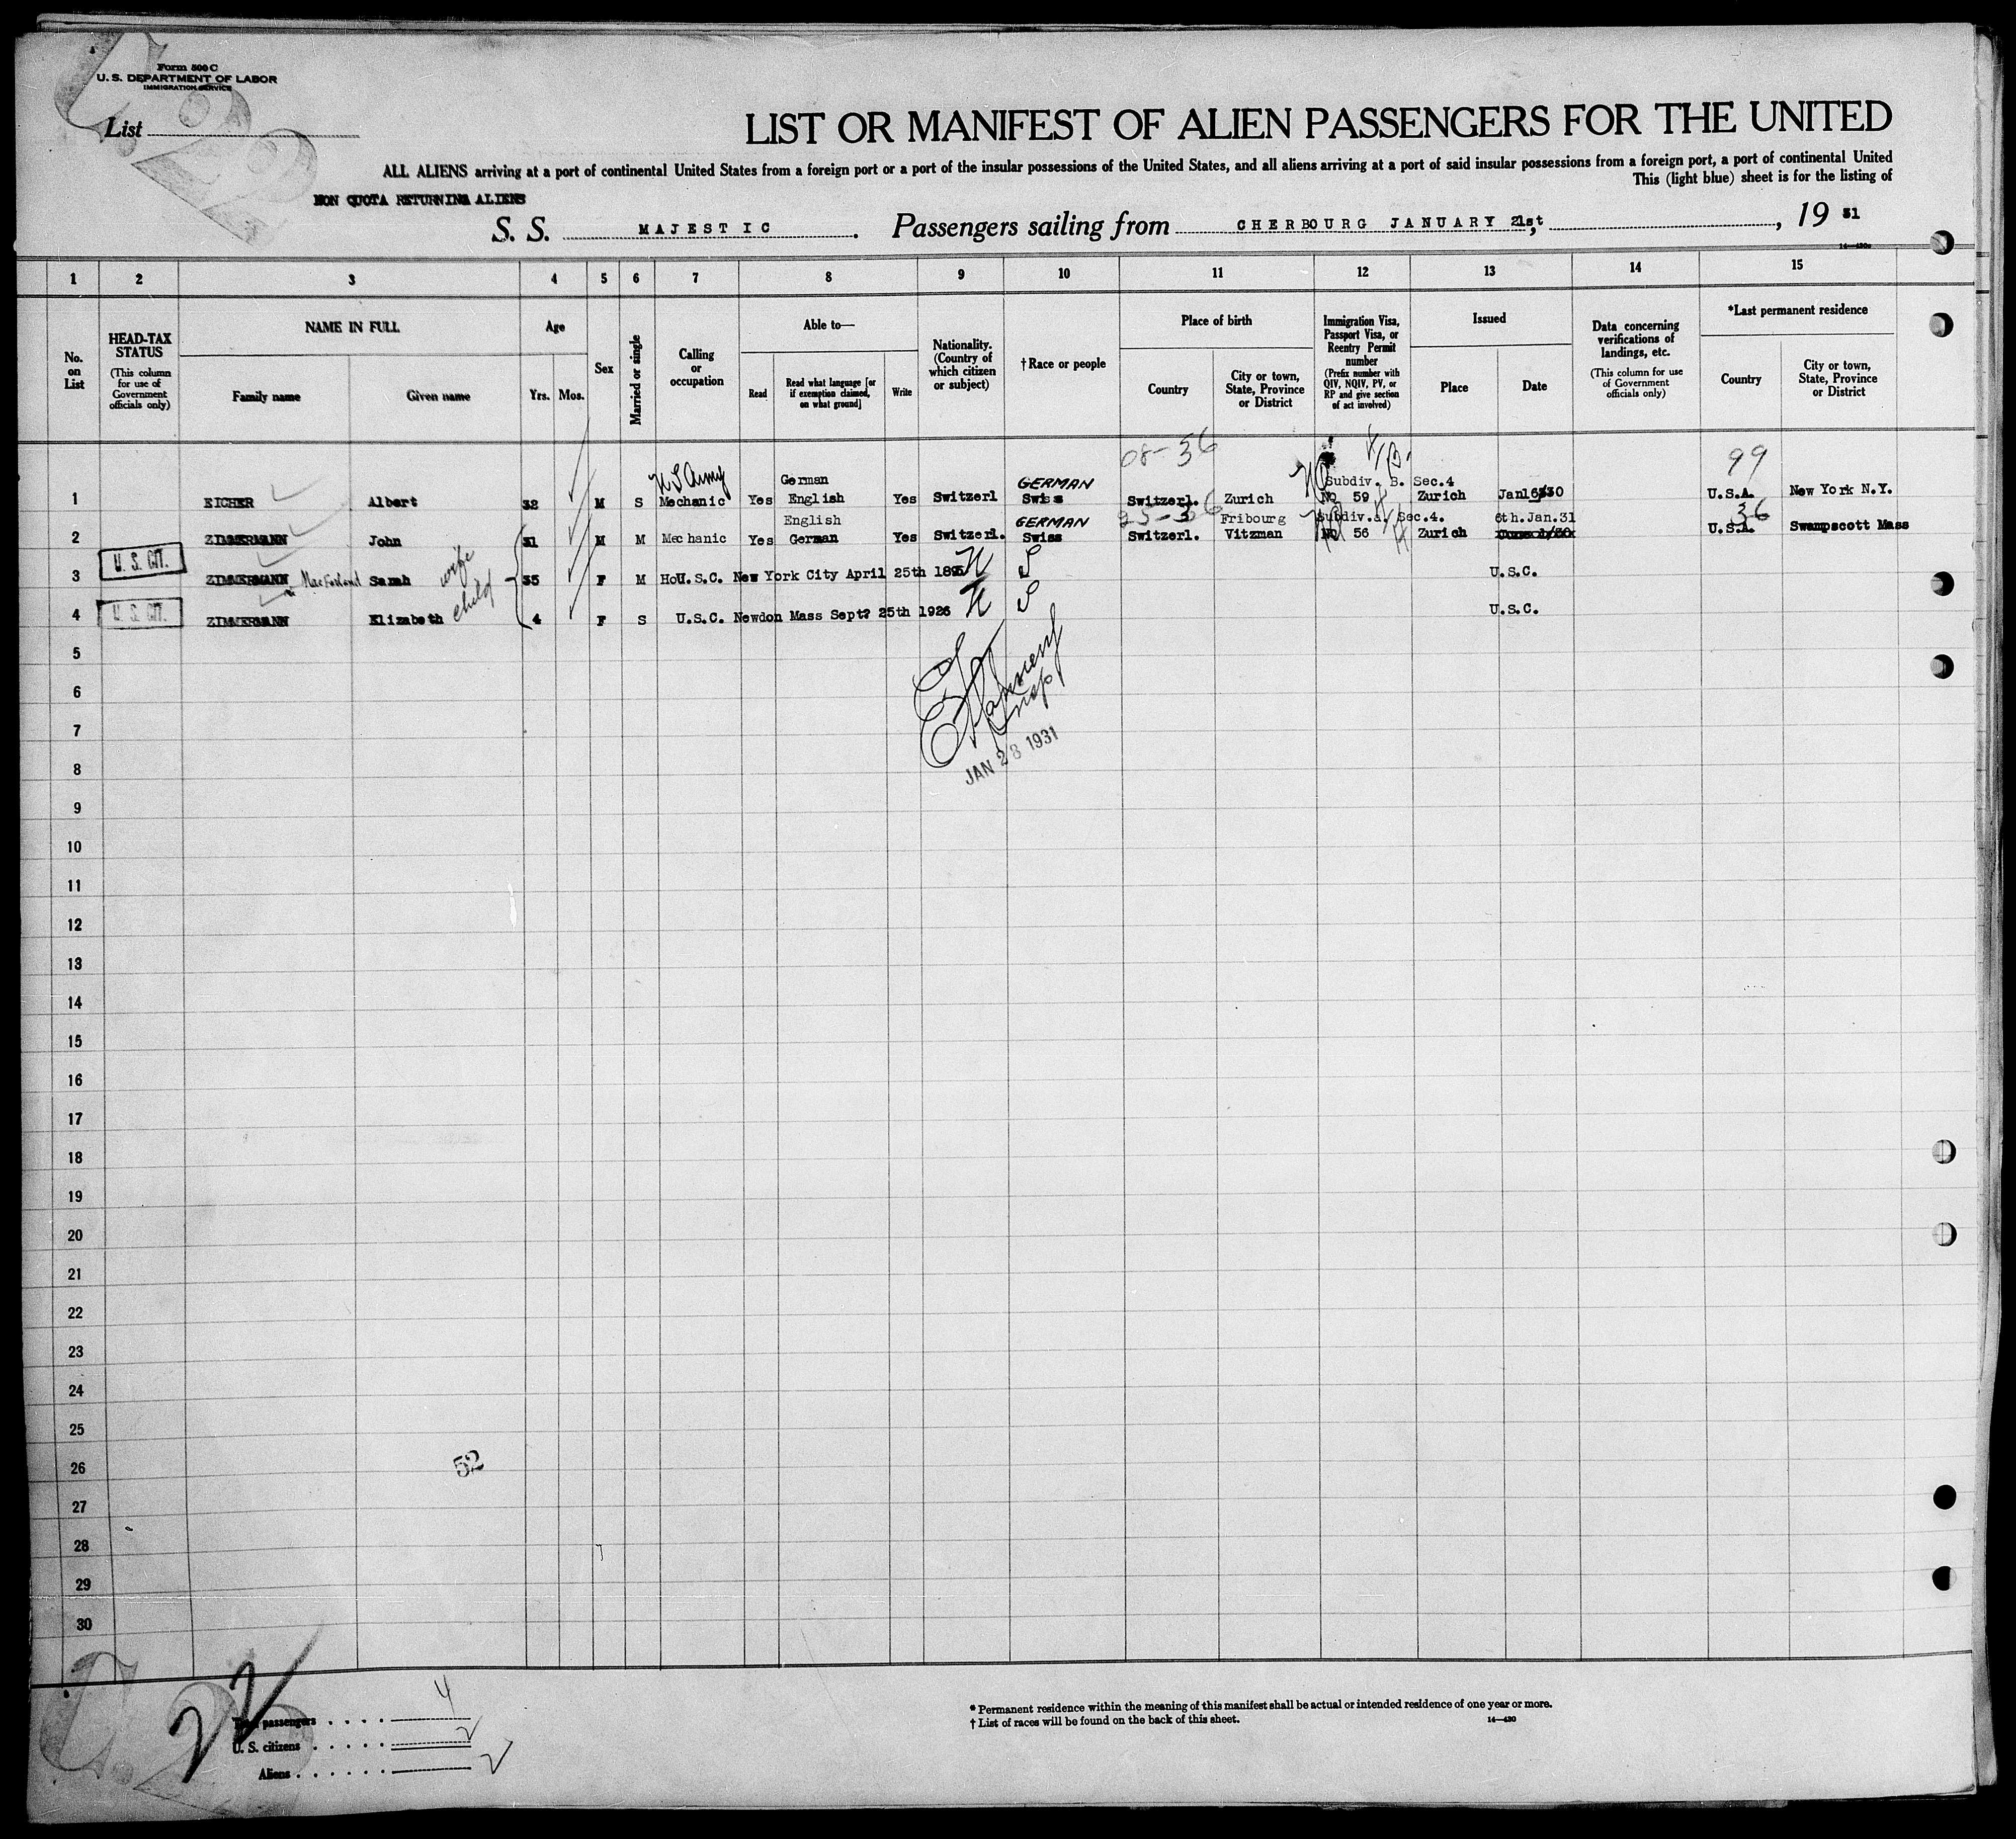 Form 500 C
U. S. DEPARTMENT OF LABOR
IMMIGRATION SERVICE
List
LIST OR MANIFEST OF ALIEN PASSENGERS FOR THE UNITED
ALL ALIENS arriving at a port of continental United States from a foreign port or a port of the insular possessions of the United States, and all aliens arriving at a port of said insular possessions from a foreign port, a port of continental United
This (light blue) sheet is for the listing of
NON QUOTA RETURNING ALIENS
S. S. MAJESTIC. Passengers sailing from CHERBOURG JANUARY 21st, , 19 31
1 2 3 4 5 6 7 8 9 10 11 12 13 14 15
No. on List
HEAD-TAX STATUS
(This column for use of Government officials only)
NAME IN FULL
Family name
Given name
Age
Yrs. Mos.
Sex
Married or single
Calling or occupation
Able to—
Read
Read what language [or if exemption claimed, on what ground]
Write
Nationality. (Country of which citizen or subject)
† Race or people
Place of birth
Country
City or town, State, Province or District
Immigration Visa, Passport Visa, or Reentry Permit number
(Prefix number with QIV, NQIV, PV, or RP and give section of act involved)
Issued
Place
Date
Data concerning verifications of landings, etc.
(This column for use of Government officials only)
*Last permanent residence
Country
City or town, State, Province or District
08-36
99
U S Army German GERMAN Subdiv. B. Sec.4
1 EICHER Albert 32 M S Mechanic Yes English Yes Switzerl Swiss Switzerl. Zurich No 59 Zurich U.S.A. New York N.Y.
English GERMAN Fribourg Sec.4. 6th.Jan.31 36
2 ZIMMERMANN John 31 M M Mechanic Yes German Yes Switzerl. Swiss Switzerl. Vitzman No 56 Zurich U.S.A. Swampscott Mass
U. S. CIT.
3 ZIMMERMANN Sarah wife 35 F M U.S.C. New York City April 25th U.S.C.
U. S. CIT.
4 ZIMMERMANN Elizabeth child 4 F S U.S.C. Newdon Mass Sept? 25th 1926 U.S.C.
5
6
7
Insp
JAN 28 1931
8
9
10
11
12
13
14
15
16
17
18
19
20
21
22
23
24
25
26
52
27
28
29
30
22
passengers . . . . 4
U. S. citizens . . . . . 2
Aliens . . . . . . 2
* Permanent residence within the meaning of this manifest shall be actual or intended residence of one year or more.
† List of races will be found on the back of this sheet. 14—430